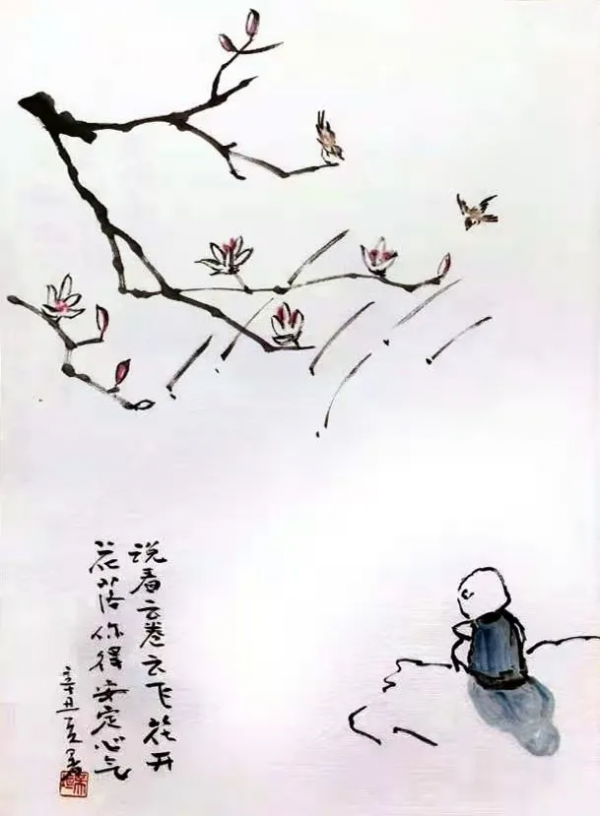 说看云卷云飞花开
花落你得安定心气
辛丑夏署